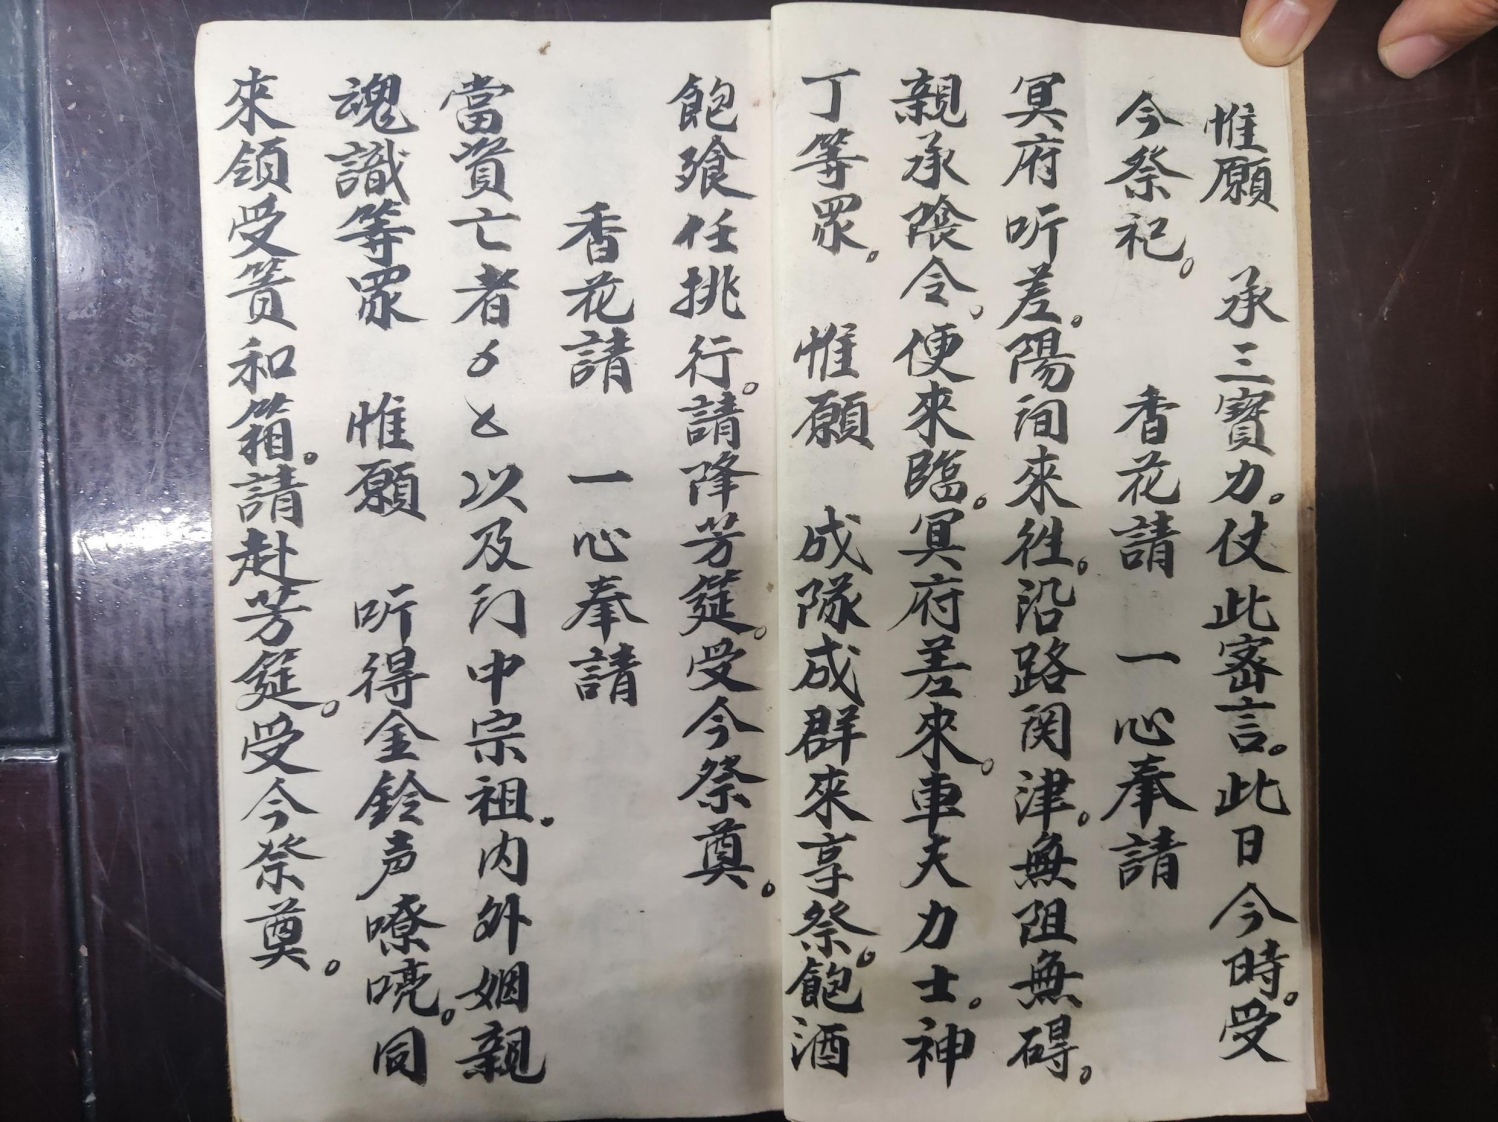 惟願　承三寶力。仗此密言。此日今時。受
今祭祀。　香花請　一心奉請
冥府听差。陽间來往。沿路関津。無阻無碍。
親承陰令。便來臨。冥府差來。車夫力士。神
丁等眾。　惟願　成隊成群來享祭。飽酒
飽飡任挑行。請降芳筵。受今祭奠。
香花請　一心奉請
當資亡者　以及门中宗祖。内外姻親
魂識等眾　惟願　听得金鈴声嘹喨。同
來領受篢和箱。請赴芳筵。受今祭奠。